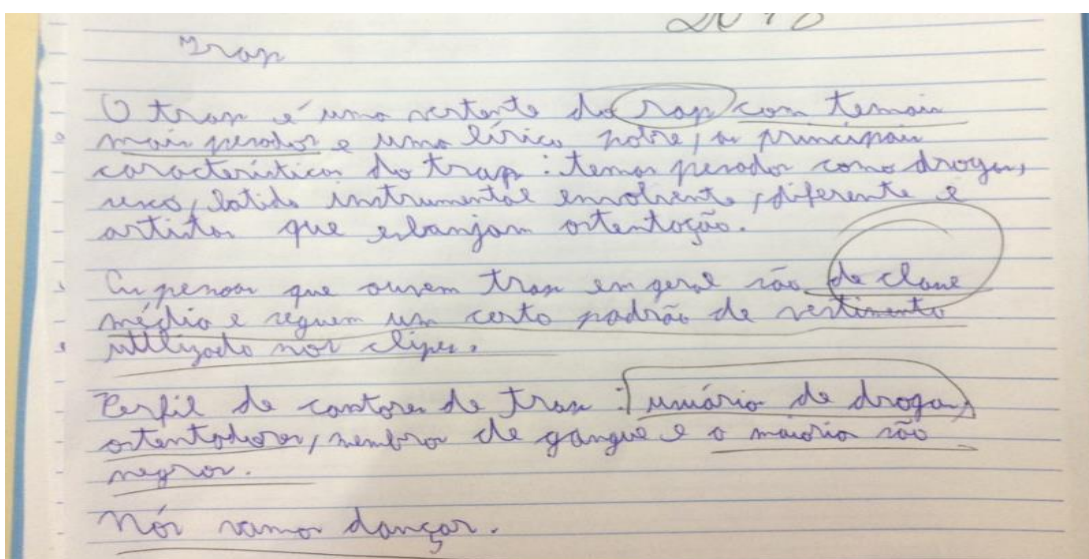 Trap
O trap é uma vertente do rap com temais
mais pesados e uma lírica pobre, as principais
características do trap: temas pesados como drogas,
sexo, batida instrumental envolvente, diferente e
artistas que esbanjam ostentação.
As pessoas que ouvem trap em geral são de classe
média e seguem um certo padrão de vestimenta
utilizado nos clipes.
Perfil de cantores de trap: usuário de drogas,
ostentadores, membros de gangue e a maioria são
negros.
Nós vamos dançar.